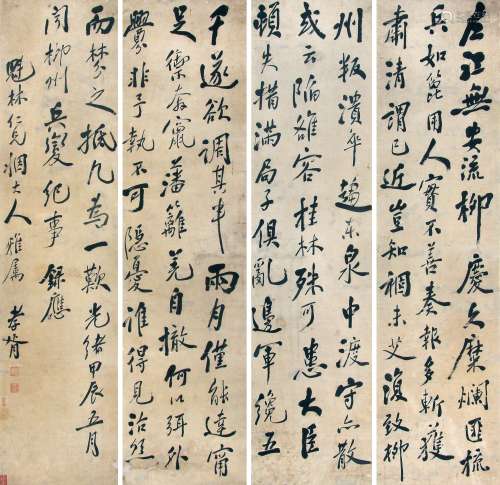 左江無安流柳慶久糜爛匪梳
兵如篦用人實不善奏報多斬獲
肅清謂已近豈知禍未艾復致柳
州叛潰卒趨東泉中渡守亦散
或云陷雒容桂林殊可患大臣
頓失措滿局子俱亂邊軍纔五
千遂欲調其半兩月僅能達甯
足禦奔竄藩籬羌自撤何以弭外
釁非予執不可隱憂誰得見治絲
而棼之抵几為一歎光緒甲辰五月
聞柳州兵變紀事 錄應
林仁兄大人雅屬 孝胥